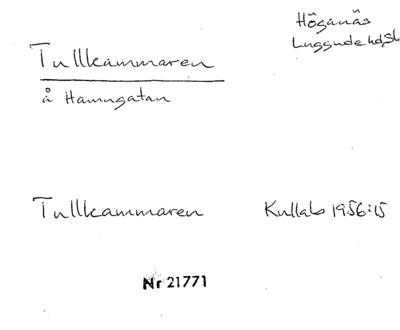 Höganäs
Luggude hd, Sk
Tullkammaren
å Hamngatan
Tullkammaren Kullab 1956:15
Nr 21771